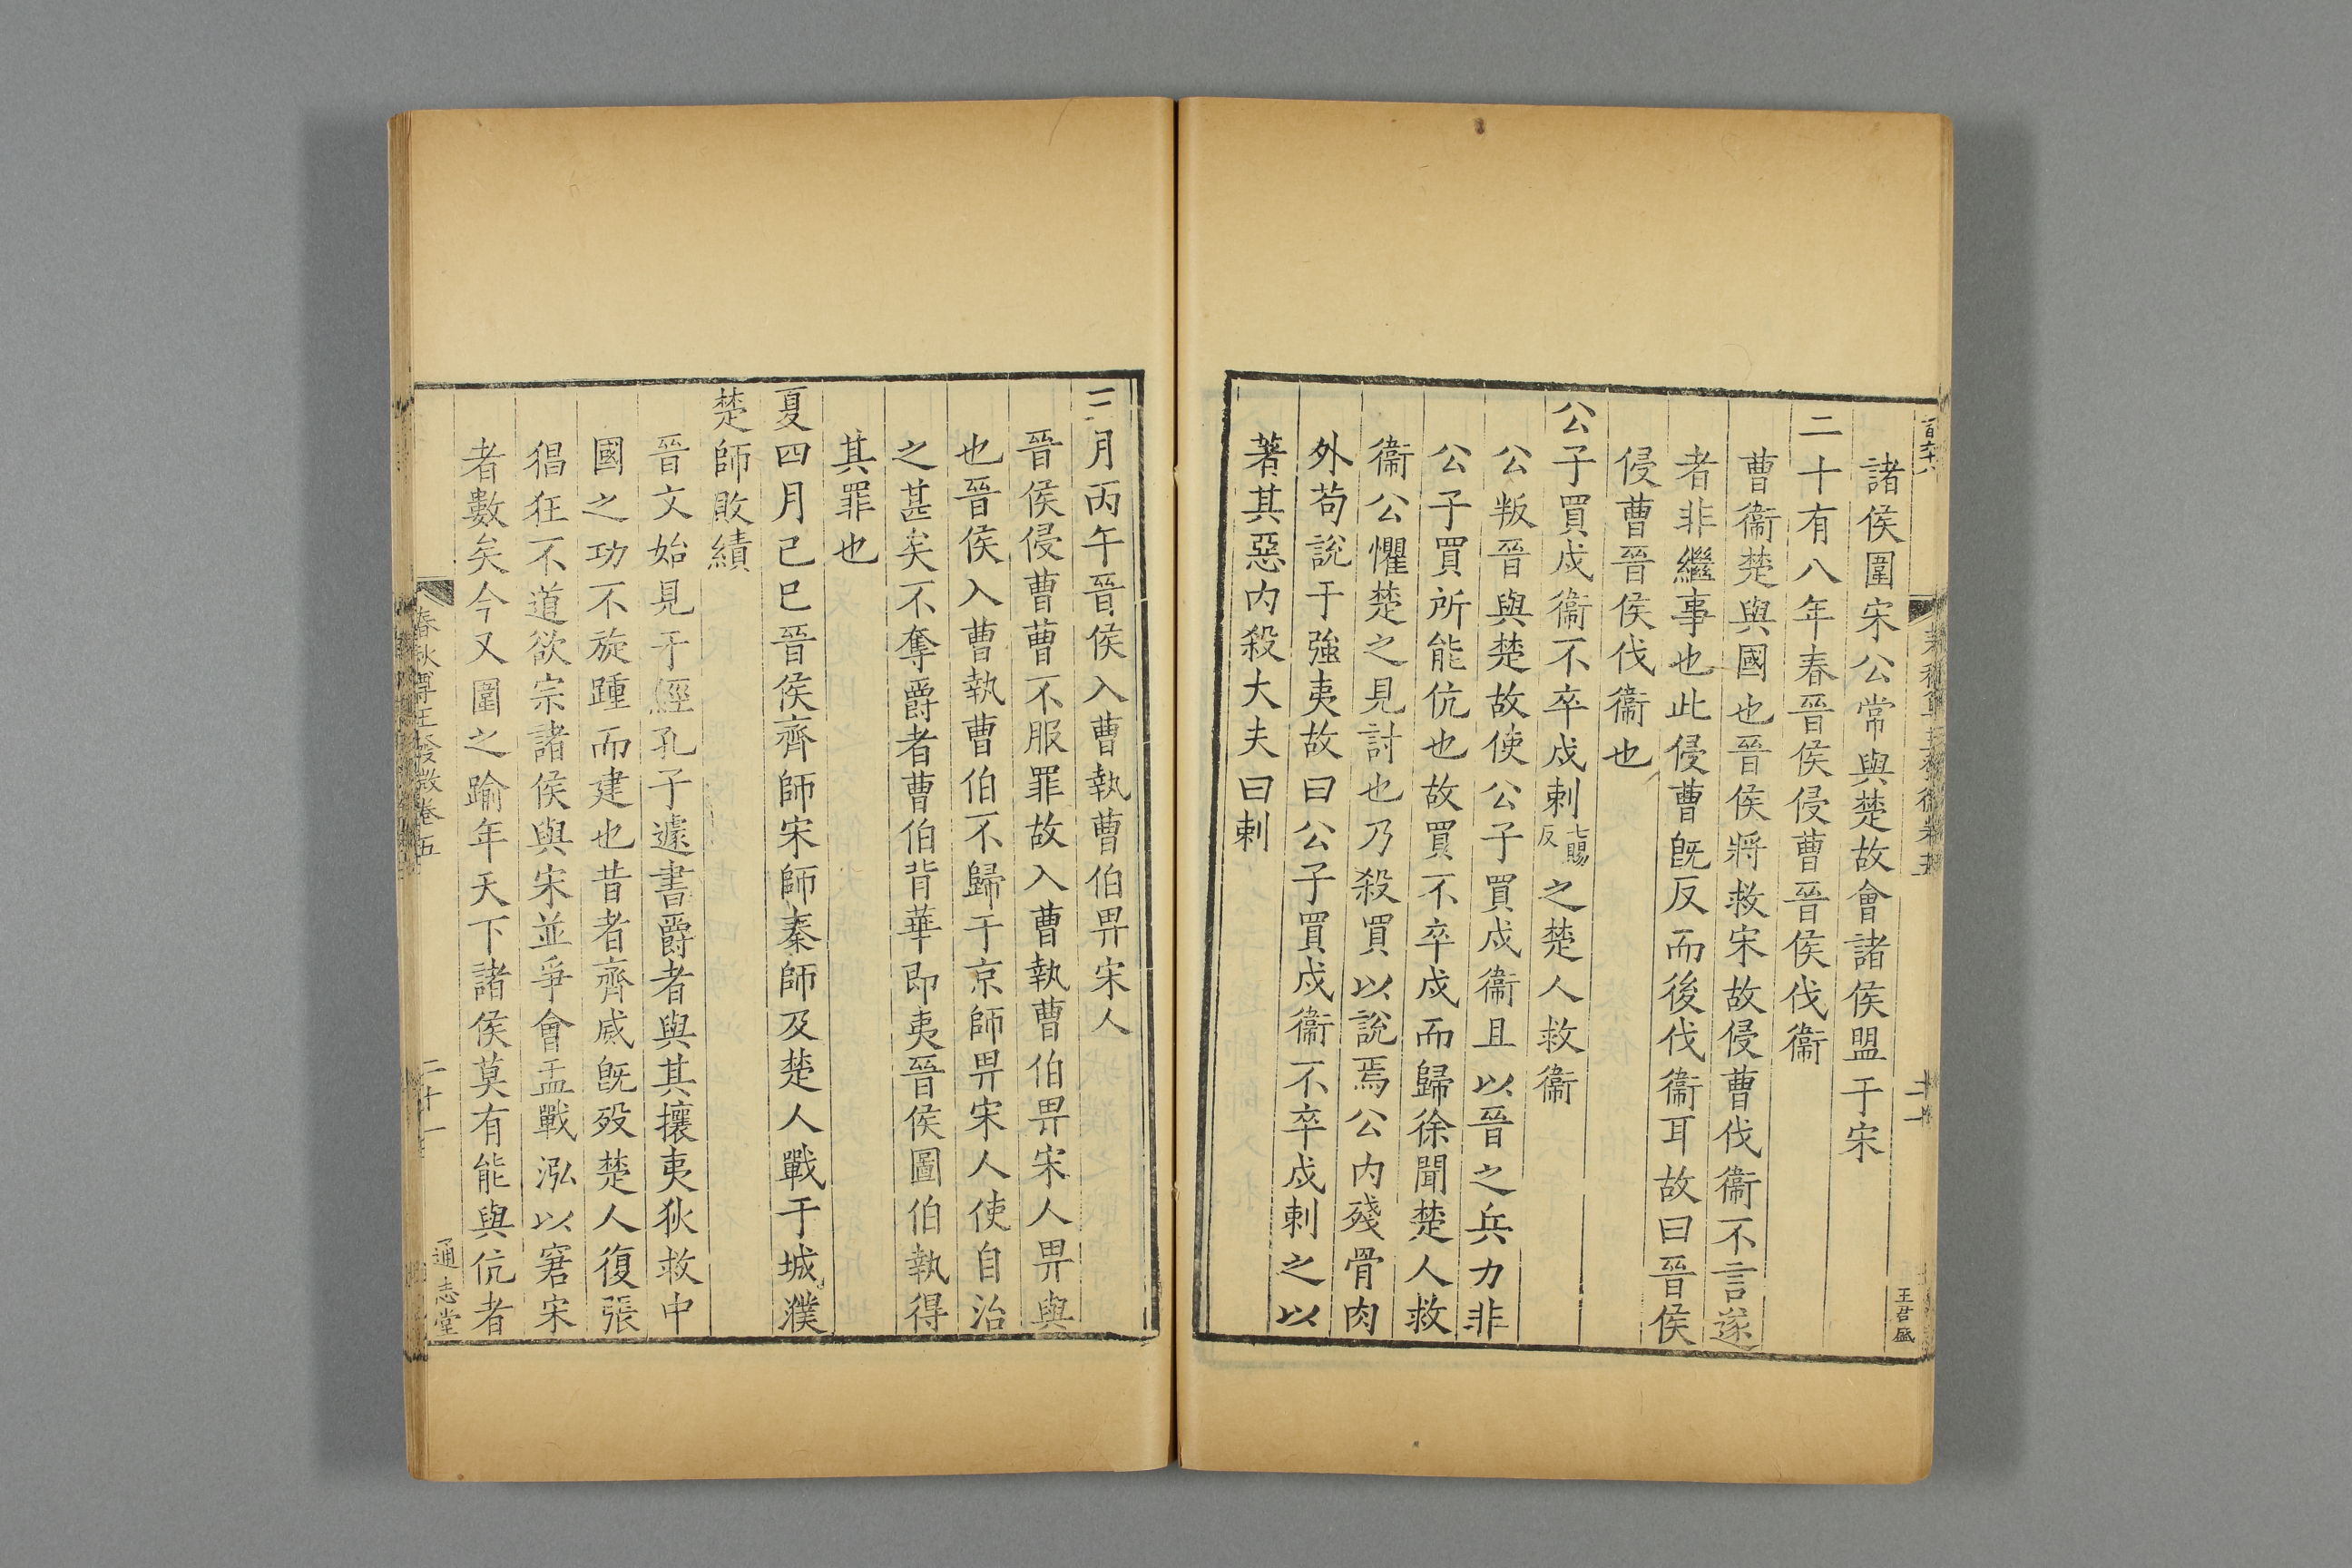 諸侯圍宋公常與楚故會諸侯盟于宋
二十有八年春晉侯侵曹晉侯伐衞
曹衞楚與國也晉侯將救宋故侵曹伐衞不言遂
者非繼事也此侵曹旣反而後伐衞耳故曰晉侯
侵曹晉侯伐衞也
公子買戍衞不卒戍刺七賜反之楚人救衞
公叛晉與楚故使公子買戍衞且以晉之兵力非
公子買所能伉也故買不卒戍而歸徐聞楚人救
衞公懼楚之見討也乃殺買以說焉公內殘骨肉
外苟說于強夷故曰公子買戍衞不卒戍刺之以
著其惡內殺大夫曰刺
王君盛
三月丙午晉侯入曹執曹伯畀宋人
晉侯侵曹曹不服罪故入曹執曹伯畀宋人畀與
也晉侯入曹執曹伯不歸于京師畀宋人使自治
之甚矣不奪爵者曹伯背華即夷晉侯圖伯執得
其罪也
夏四月己巳晉侯齊師宋師秦師及楚人戰于城濮
楚師敗績
晉文始見于經孔子遽書爵者與其攘夷狄救中
國之功不旋踵而建也昔者齊威旣歿楚人復張
猖狂不道欲宗諸侯與宋並爭會盂戰泓以窘宋
者數矣今又圍之踰年天下諸侯莫有能與伉者
春秋尊王發微卷五
二十一
通志堂